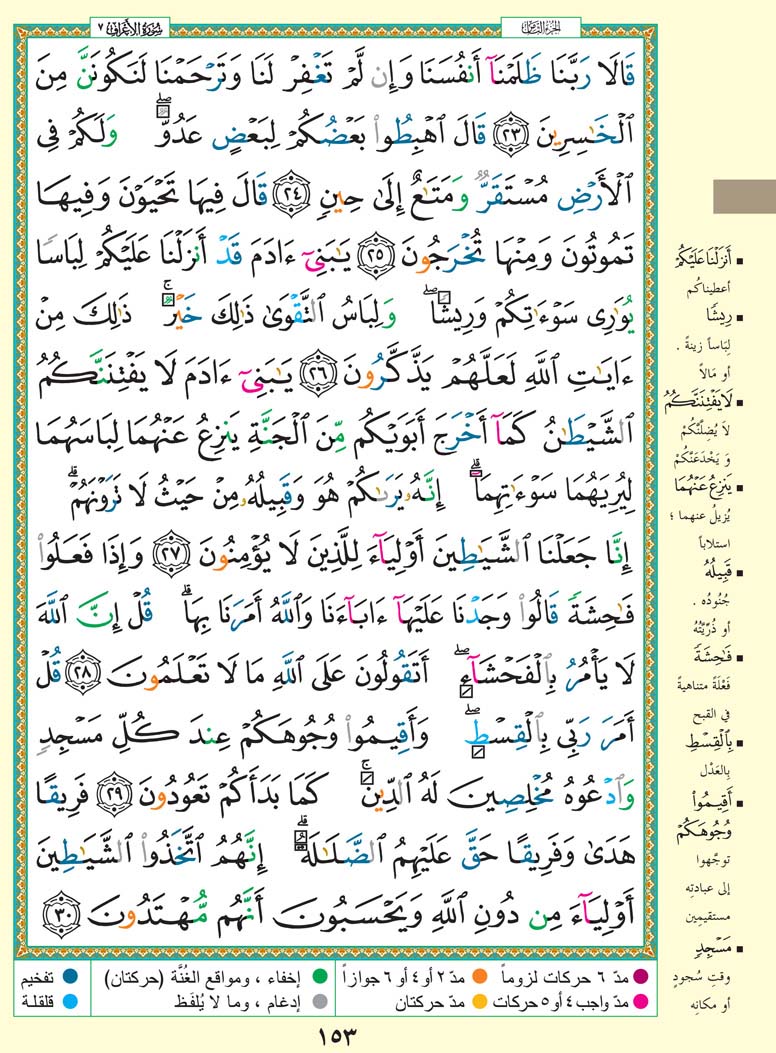 الجزء الثامن
سورة الأعراف ٧
قَالَا رَبَّنَا ظَلَمْنَآ أَنفُسَنَا وَإِن لَّمْ تَغْفِرْ لَنَا وَتَرْحَمْنَا لَنَكُونَنَّ مِنَ
ٱلْخَٰسِرِينَ ٢٣ قَالَ ٱهْبِطُوا۟ بَعْضُكُمْ لِبَعْضٍ عَدُوٌّ ۖ وَلَكُمْ فِى
ٱلْأَرْضِ مُسْتَقَرٌّ وَمَتَٰعٌ إِلَىٰ حِينٍ ٢٤ قَالَ فِيهَا تَحْيَوْنَ وَفِيهَا
تَمُوتُونَ وَمِنْهَا تُخْرَجُونَ ٢٥ يَٰبَنِىٓ ءَادَمَ قَدْ أَنزَلْنَا عَلَيْكُمْ لِبَاسًا
يُوَٰرِى سَوْءَٰتِكُمْ وَرِيشًا ۖ وَلِبَاسُ ٱلتَّقْوَىٰ ذَٰلِكَ خَيْرٌ ۚ ذَٰلِكَ مِنْ
ءَايَٰتِ ٱللَّهِ لَعَلَّهُمْ يَذَّكَّرُونَ ٢٦ يَٰبَنِىٓ ءَادَمَ لَا يَفْتِنَنَّكُمُ
ٱلشَّيْطَٰنُ كَمَآ أَخْرَجَ أَبَوَيْكُم مِّنَ ٱلْجَنَّةِ يَنزِعُ عَنْهُمَا لِبَاسَهُمَا
لِيُرِيَهُمَا سَوْءَٰتِهِمَآ ۗ إِنَّهُۥ يَرَىٰكُمْ هُوَ وَقَبِيلُهُۥ مِنْ حَيْثُ لَا تَرَوْنَهُمْ ۗ
إِنَّا جَعَلْنَا ٱلشَّيَٰطِينَ أَوْلِيَآءَ لِلَّذِينَ لَا يُؤْمِنُونَ ٢٧ وَإِذَا فَعَلُوا۟
فَٰحِشَةً قَالُوا۟ وَجَدْنَا عَلَيْهَآ ءَابَآءَنَا وَٱللَّهُ أَمَرَنَا بِهَا ۗ قُلْ إِنَّ ٱللَّهَ
لَا يَأْمُرُ بِٱلْفَحْشَآءِ ۖ أَتَقُولُونَ عَلَى ٱللَّهِ مَا لَا تَعْلَمُونَ ٢٨ قُلْ
أَمَرَ رَبِّى بِٱلْقِسْطِ ۖ وَأَقِيمُوا۟ وُجُوهَكُمْ عِندَ كُلِّ مَسْجِدٍ
وَٱدْعُوهُ مُخْلِصِينَ لَهُ ٱلدِّينَ ۚ كَمَا بَدَأَكُمْ تَعُودُونَ ٢٩ فَرِيقًا
هَدَىٰ وَفَرِيقًا حَقَّ عَلَيْهِمُ ٱلضَّلَٰلَةُ ۗ إِنَّهُمُ ٱتَّخَذُوا۟ ٱلشَّيَٰطِينَ
أَوْلِيَآءَ مِن دُونِ ٱللَّهِ وَيَحْسَبُونَ أَنَّهُم مُّهْتَدُونَ ٣٠
▪ أَنزَلْنَا عَلَيْكُمْ
أعطيناكُم
▪ رِيشًا
لِبَاساً زينةً .
أو مَالاً
▪ لَا يَفْتِنَنَّكُمُ
لاَ يُضلَّنَّكُمْ
وَ يَخْدَعَنَّكُمْ
▪ يَنزِعُ عَنْهُمَا
يُزيلُ عنهما ؛
استلاباً
▪ قَبِيلُهُ
جُنُودُه .
أو ذُرِّيَّتُهُ
▪ فَٰحِشَةً
فَعْلَةً متناهيةً
في القبح
▪ بِٱلْقِسْطِ
بالعَدْل
▪ أَقِيمُوا۟
وُجُوهَكُمْ
توجَّهوا
إلى عبادتِه
مستقيمين
▪ مَسْجِدٍ
وقتِ سُجودٍ
أو مكانِه
مدّ ٦ حركات لزوماً ● مدّ ٢ أو ٤ أو ٦ جوازاً ● إخفاء ، ومواقع الغُنَّة (حركتان) ● تفخيم
مدّ واجب ٤ أو ٥ حركات ● مدّ حركتان ● إدغام ، وما لا يُلفَظ ● قلقلة
١٥٣